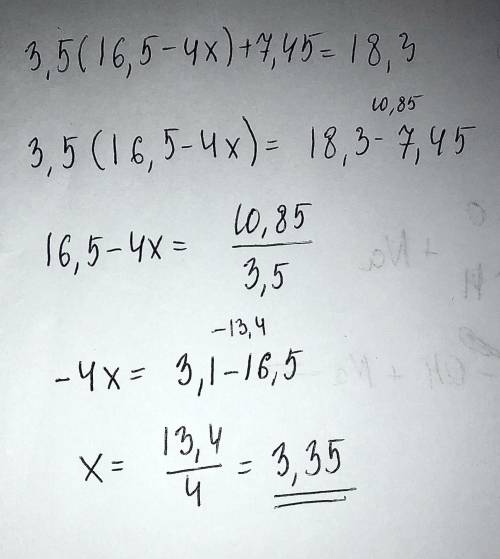 3,5(16,5-4x)+7,45=18,3
10,85
3,5(16,5-4x)= 18,3-7,45
16,5-4x= 10,85/3,5
-13,4
-4x= 3,1-16,5
x= 13,4/4 = 3,35